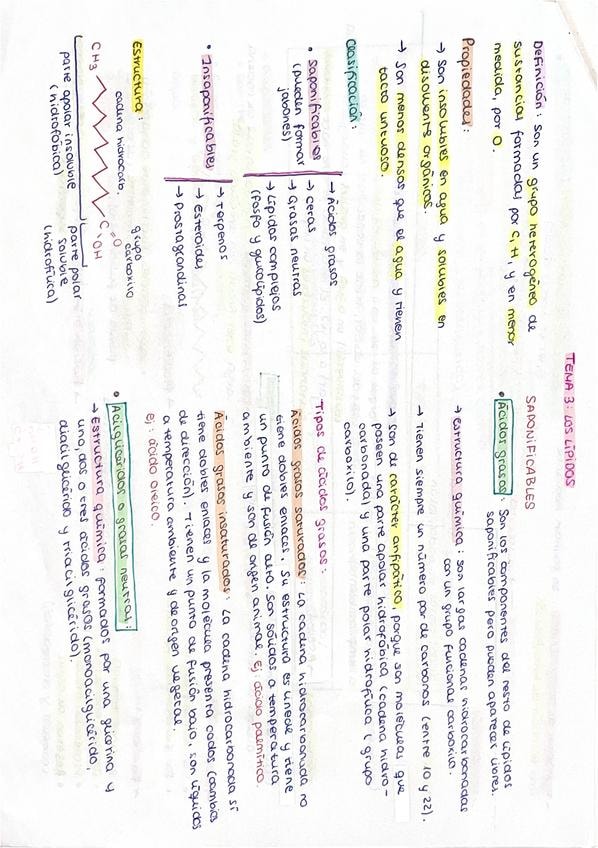 TEMA 3: LOS LÍPIDOS
Definición: son un grupo heterogéneo de
sustancias formadas por C, H, y en menor
medida, por O.
Propiedades:
→ Son insolubles en agua y solubles en
disolvente orgánicos.
→ Son menos densos que el agua y tienen
tacto untuoso.
Clasificación:
• Saponificables
(pueden formar
jabones)
→ Ácidos grasos
→ ceras
→ Grasas neutras
→ Lípidos complejos
(fosfo y glucolípidos)
• Insaponificables
→ Terpenos
→ Esteroides
→ Prostaglandinas
Estructura:
cadena hidrocarb.
grupo
carboxilo
CH3
C=O
OH
parte apolar insoluble
(hidrofóbica)
parte polar
soluble
(hidrofílica)
SAPONIFICABLES
• Ácidos grasos: Son los componentes del resto de lípidos
saponificables pero pueden aparecer libres.
→ estructura química: son largas cadenas hidrocarbonadas
con un grupo funcional carboxilo.
→ Tienen siempre un número par de carbonos (entre 10 y 22).
→ Son de carácter anfipático, porque son moléculas que
poseen una parte apolar hidrofóbica (cadena hidro-
carbonada) y una parte polar hidrofílica (grupo
carboxilo).
Tipos de ácidos grasos:
Ácidos grasos saturados: La cadena hidrocarbonada no
tiene dobles enlaces. Su estructura es lineal y tiene
un punto de fusión alto. Son sólidos a temperatura
ambiente y son de origen animal. Ej: ácido palmítico.
Ácidos grasos insaturados: La cadena hidrocarbonada sí
tiene dobles enlaces y la molécula presenta codos (cambios
de dirección). Tienen un punto de fusión bajo, son líquidos
a temperatura ambiente y de origen vegetal.
Ej: ácido oleico.
• Acilglicéridos o grasas neutras:
→ Estructura química: formados por una glicerina y
uno, dos o tres ácidos grasos (monoacilglicérido,
diacilglicérido y triacilglicérido).